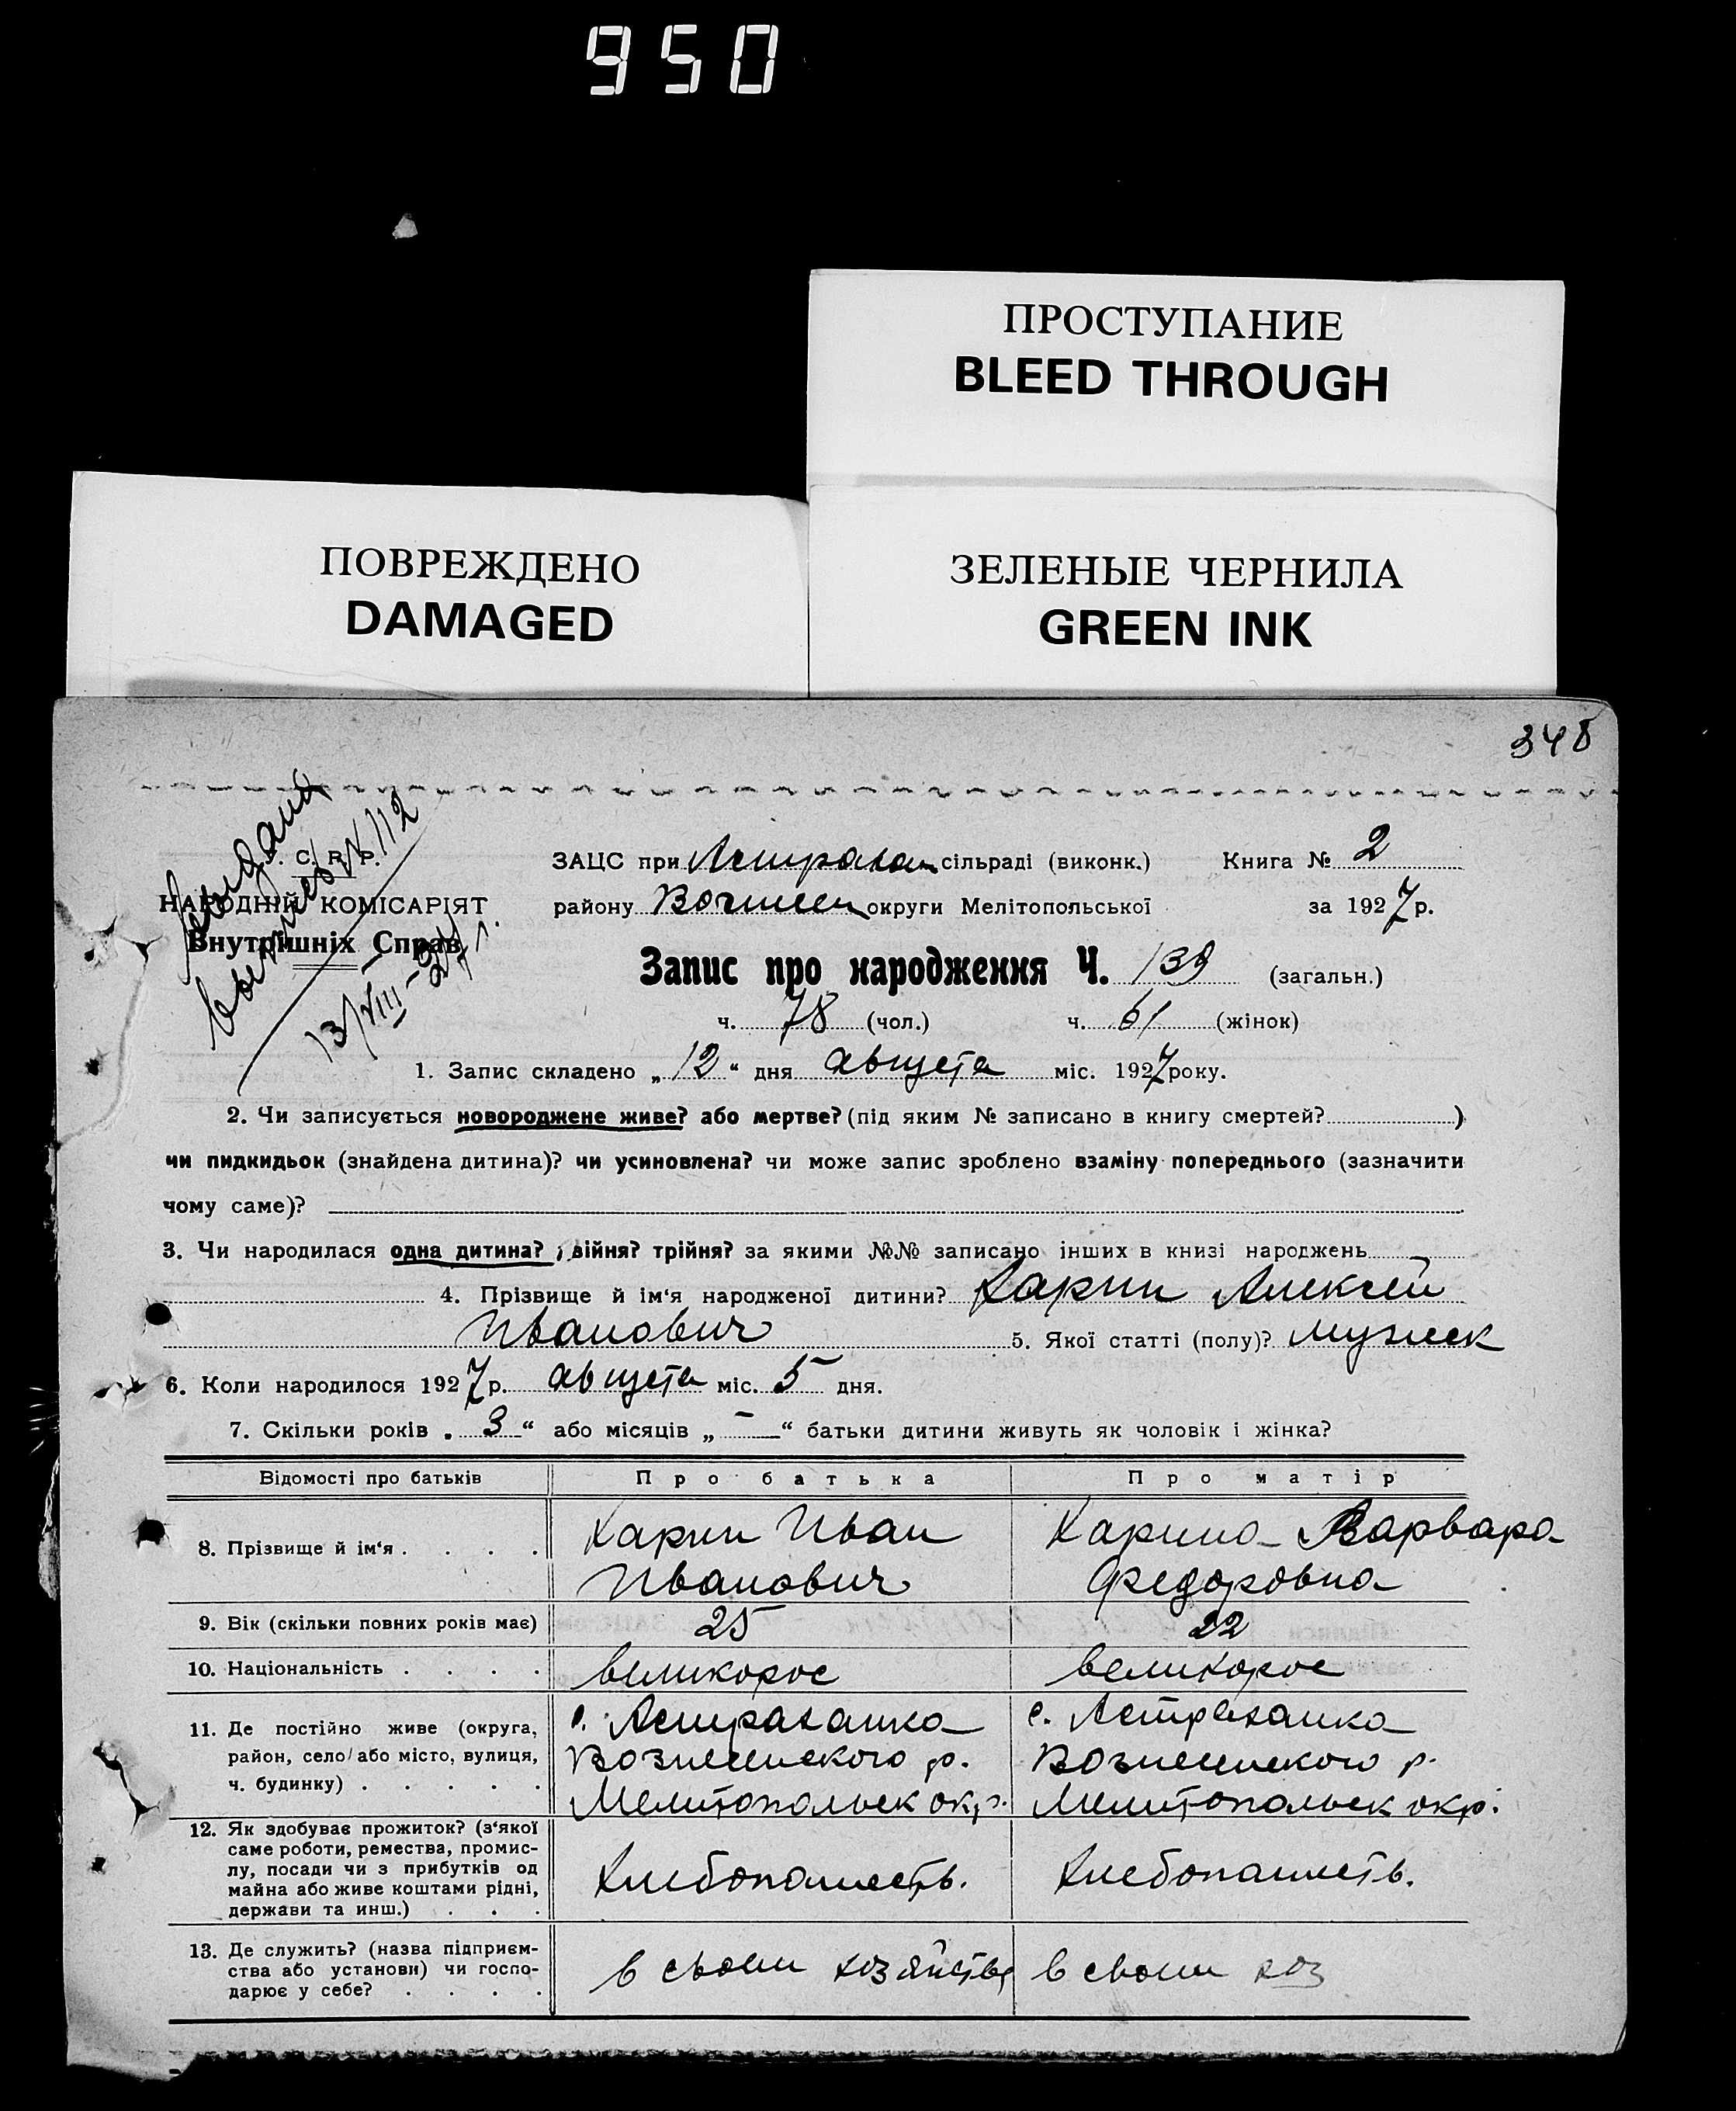 950
ПРОСТУПАНИЕ
BLEED THROUGH
ПОВРЕЖДЕНО
DAMAGED
ЗЕЛЕНЫЕ ЧЕРНИЛА
GREEN INK
348
выдана
выпись № 112
13/VIII-27 г.
С. Р. Р.
НАРОДНІЙ КОМІСАРІЯТ
Внутрішніх Справ
ЗАЦС при Астрахан сільраді (виконк.) Книга № 2
району Вознесен округи Мелітопольської за 1927 р.
Запис про народження Ч. 139 (загальн.)
ч. 78 (чол.) ч. 61 (жінок)
1. Запис складено „12“ дня августа міс. 1927 року.
2. Чи записується новороджене живе? або мертве? (під яким № записано в книгу смертей? )
чи пидкидьок (знайдена дитина)? чи усиновлена? чи може запис зроблено взаміну попереднього (зазначити
чому саме)?
3. Чи народилася одна дитина? двійня? трійня? за якими №№ записано інших в книзі народжень
4. Прізвище й ім‘я народженої дитини? Карин Алексей
Иванович 5. Якої статті (полу)? мужеск
6. Коли народилося 1927 р. августа міс. 5 дня.
7. Скільки років „ 3 “ або місяців „ — “ батьки дитини живуть як чоловік і жінка?
Відомості про батьків Про батька Про матір
8. Прізвище й ім‘я . . . . Карин Иван Карина Варвара
Иванович Федоровна
9. Вік (скільки повних років має) 25 22
10. Національність . . . . великорос великорос
11. Де постійно живе (округа, с. Астраханка с. Астраханка
район, село або місто, вулиця, Вознесенского р. Вознесенского р.
ч. будинку) . . . . . Мелитопольск окр. Мелитопольск окр.
12. Як здобуває прожиток? (з‘якої
саме роботи, ремества, промис-
лу, посади чи з прибутків од Хлебопашеств. Хлебопашеств.
майна або живе коштами рідні,
держави та инш.) . . .
13. Де служить? (назва підприєм-
ства або установи) чи госпо- в своем хозяйстве в своем хоз
дарює у себе? . . . .